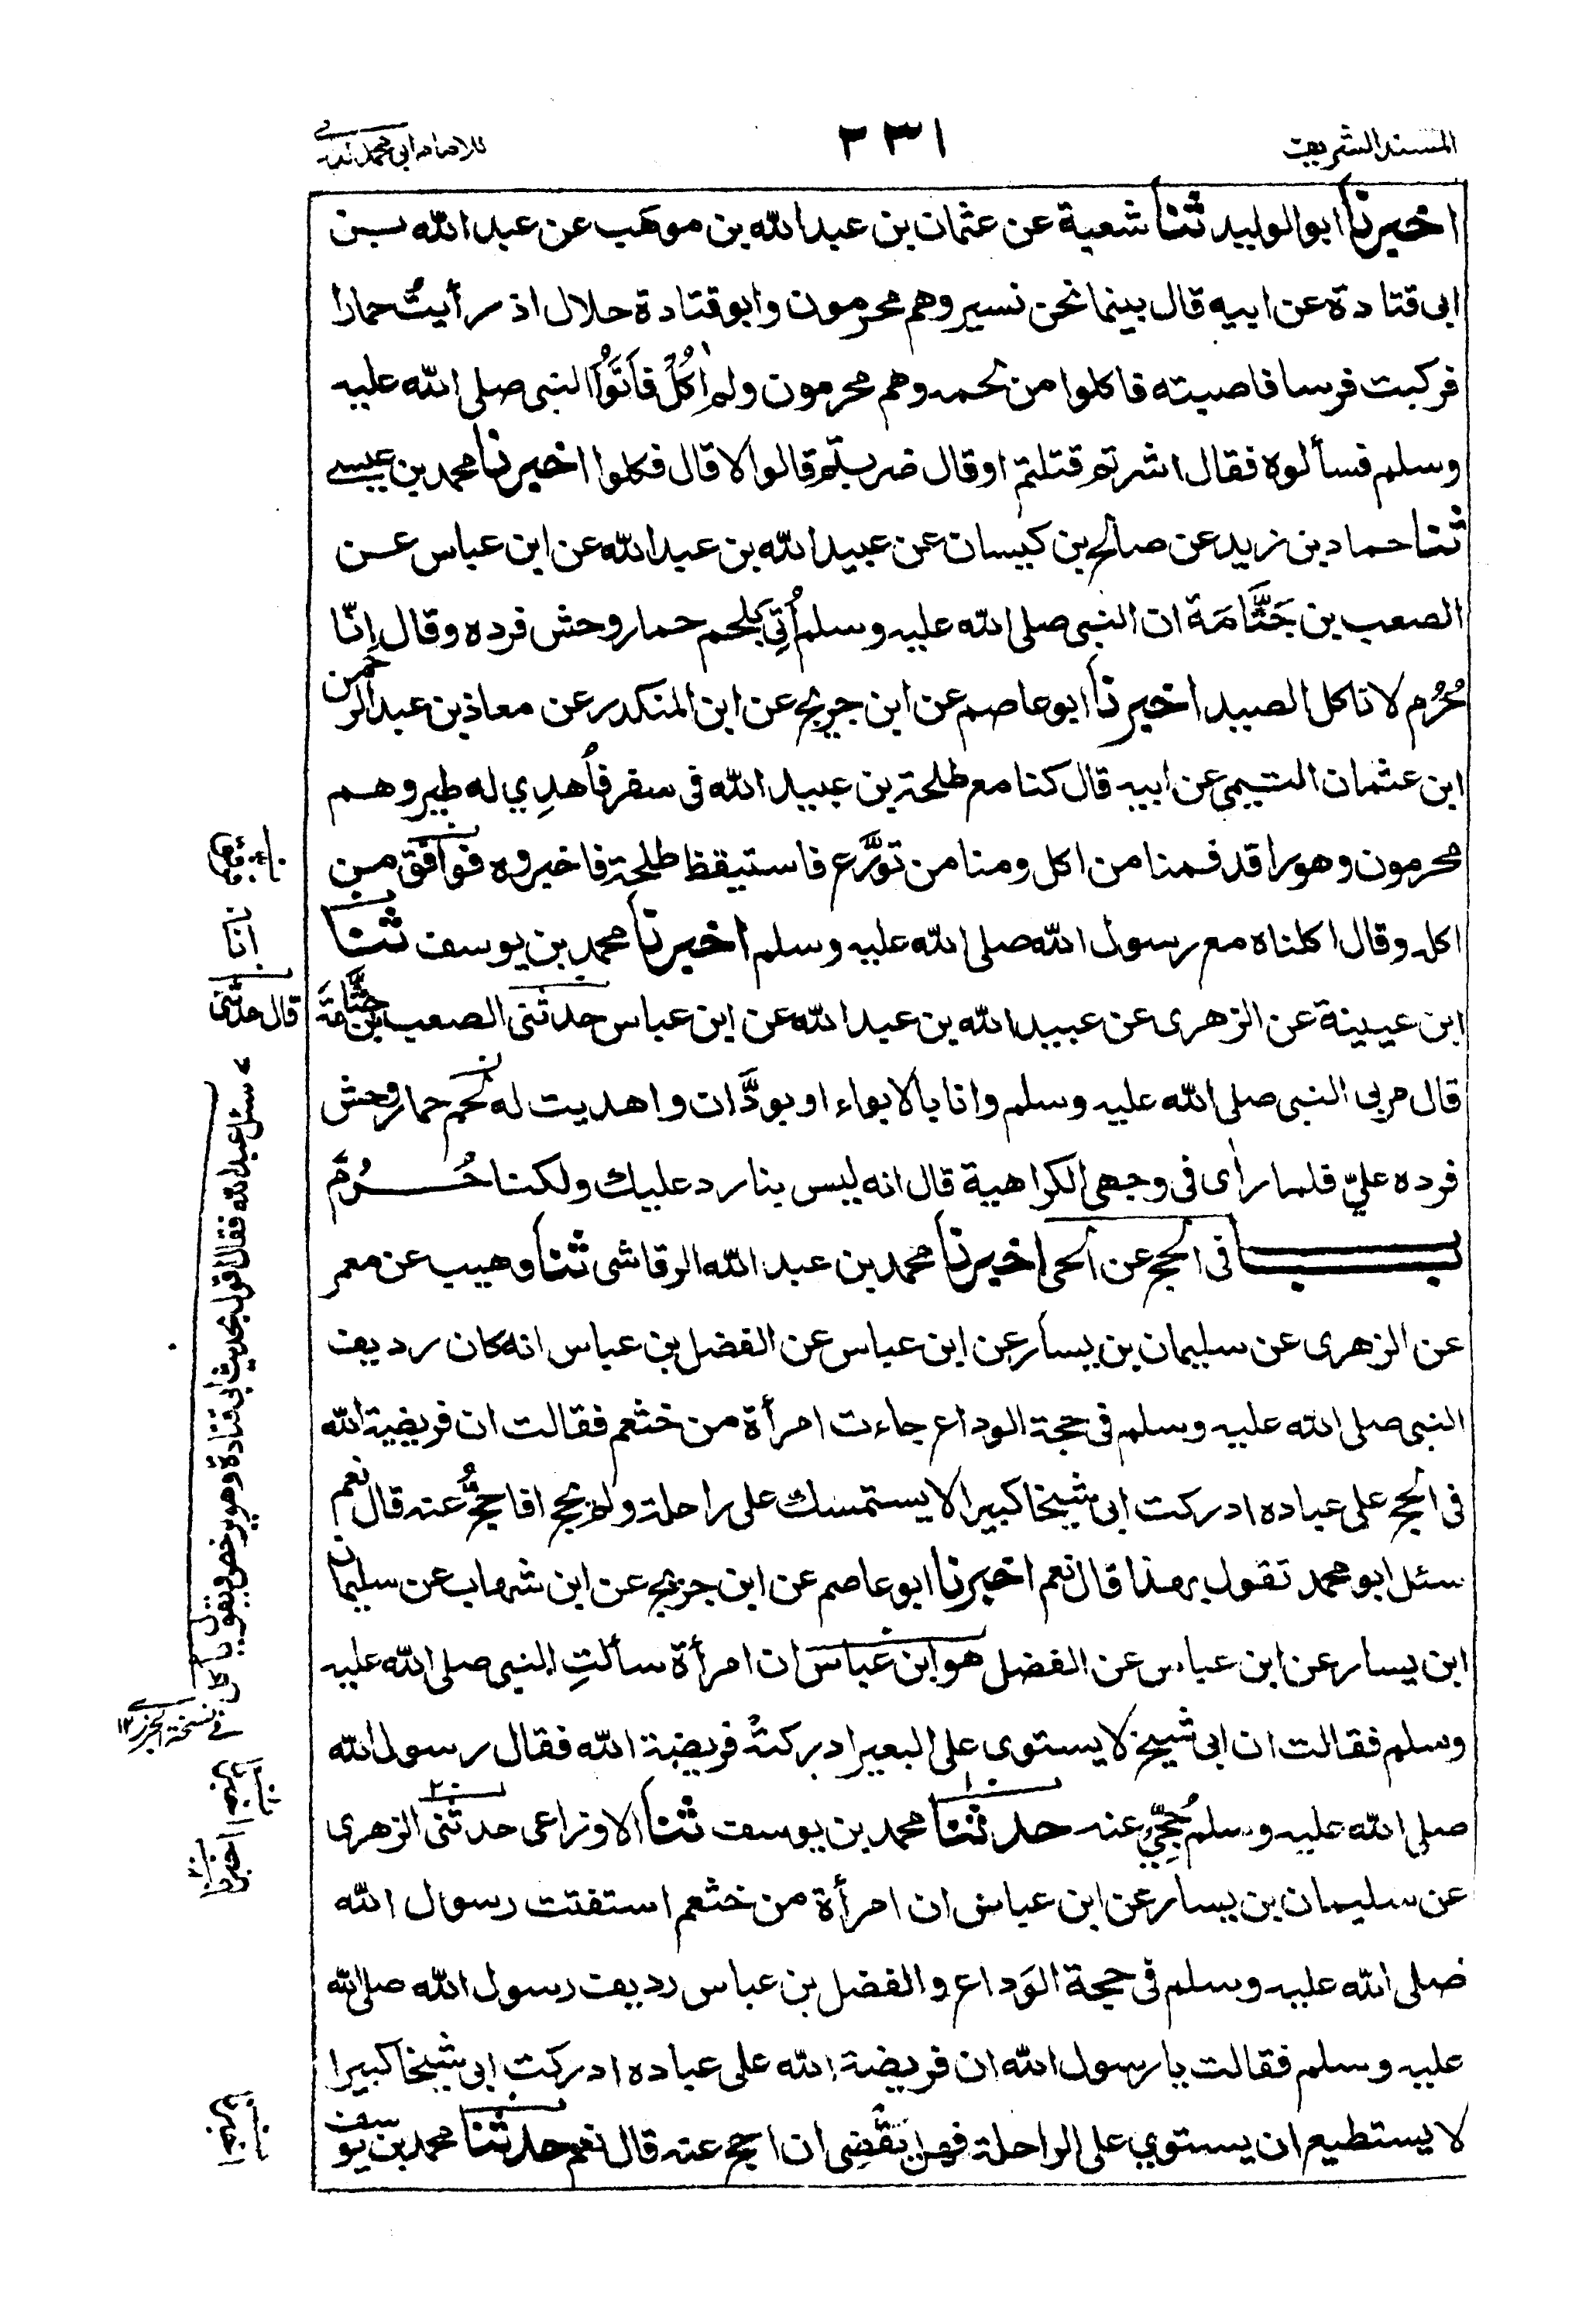 المسند الشريف
٣٣١
للامام ابى محمد
اخبرنا ابو الوليد ثنا شعبة عن عثمان بن عبد الله بن موهَب عن عبد الله بن
ابى قتادة عن ابيه قال بينما نحن نسير وهم محرمون وابو قتادة حلال اذ رأيتُ حمارا
فركبت فرسا فاصبته فاكلوا من لحمه وهم محرمون ولم اٰكُلْ فاَتَوُا النبى صلى الله عليه
وسلم فسألوه فقال اشرتم قتلتم او قال ضربتم قالوا لا قال فكلوا اخبرنا محمد بن عيسى
ثنا حماد بن زيد عن صالح بن كيسان عن عبيد الله بن عبد الله عن ابن عباس عن
الصعب بن جَثَّامَة ان النبى صلى الله عليه وسلم اُتِيَ بلحم حمار وحش فرده وقال اِنّا
حُرُم لا ناكل الصيد اخبرنا ابو عاصم عن ابن جريج عن ابن المنكدر عن معاذ بن عبد الرحمن
ابن عثمان التيمى عن ابيه قال كنا مع طلحة بن عبيد الله فى سفر فاُهدِي له طير وهم
محرمون وهو راقد فمنا من اكل ومنا من تورَّع فاستيقظ طلحة فاخبروه فوافق من
اكله وقال اكلناه مع رسول الله صلى الله عليه وسلم اخبرنا محمد بن يوسف ثنا
ابن عيينة عن الزهرى عن عبيد الله بن عبد الله عن ابن عباس حدثنى الصعب بن جَثَّامَة
قال مر بى النبى صلى الله عليه وسلم وانا بالابواء او بودَّان واهديت له لحم حمار وحش
فرده عليّ فلما رأى فى وجهى الكراهية قال انه ليس بنا رد عليك ولكنا حُرُم
باب فى الحج عن الحى اخبرنا محمد بن عبد الله الرقاشى ثنا وهيب عن معمر
عن الزهرى عن سليمان بن يسار عن ابن عباس عن الفضل بن عباس انه كان رديف
النبى صلى الله عليه وسلم فى حجة الوداع جاءت امرأة من خثعم فقالت ان فريضة الله
فى الحج على عباده ادركت ابى شيخا كبيرا لا يستمسك على راحلة ولم يحج افاحجُّ عنه قال نعم
سئل ابو محمد تقول بهذا قال نعم اخبرنا ابو عاصم عن ابن جريج عن ابن شهاب عن سليمان
ابن يسار عن ابن عباس عن الفضل هو ابن عباس ان امرأة سألتِ النبى صلى الله عليه
وسلم فقالت ان ابى شيخ لا يستوى على البعير ادركتهُ فريضة الله فقال رسول الله
صلى الله عليه وسلم حُجِّي عنه حدثنا محمد بن يوسف ثنا الاوزاعى حدثنى الزهرى
عن سليمان بن يسار عن ابن عباس ان امرأة من خثعم استفتت رسول الله
صلى الله عليه وسلم فى حجة الوَداع والفضل بن عباس رديف رسول الله صلى الله
عليه وسلم فقالت يا رسول الله ان فريضة الله على عباده ادركت ابى شيخا كبيرا
لا يستطيع ان يستوي على الراحلة فهل تقضِى ان احج عنه قال نعم حدثنا محمد بن يوسف
انا
قال حدثنى
سئل عبد الله فقال اقول بحديث ابى قتادة وهو يرخص ويقول يا كل
فى نسخة الجزرى ١٢